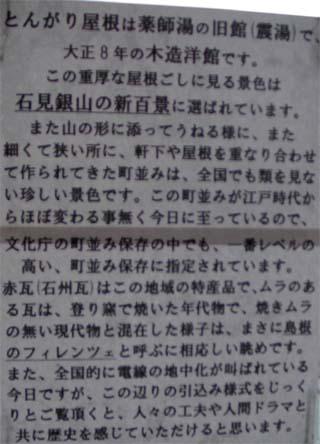 とんがり屋根は薬師湯の旧館(震湯)で、
大正8年の木造洋館です。
この重厚な屋根ごしに見る景色は
石見銀山の新百景に選ばれています。
また山の形に添ってうねる様に、また
細くて狭い所に、軒下や屋根を重なり合わせ
て作られてきた町並みは、全国でも類を見な
い珍しい景色です。この町並みが江戸時代か
らほぼ変わる事無く今日に至っているので、
文化庁の町並み保存の中でも、一番レベルの
高い、町並み保存に指定されています。
赤瓦(石州瓦)はこの地域の特産品で、ムラのあ
る瓦は、登り窯で焼いた年代物で、焼きムラ
の無い現代物と混在した様子は、まさに島根
のフィレンツェと呼ぶに相応しい眺めです。
また、全国的に電線の地中化が叫ばれている
今日ですが、この辺りの引込み様式をじっく
りとご覧頂くと、人々の工夫や人間ドラマと
共に歴史を感じていただけると思います。